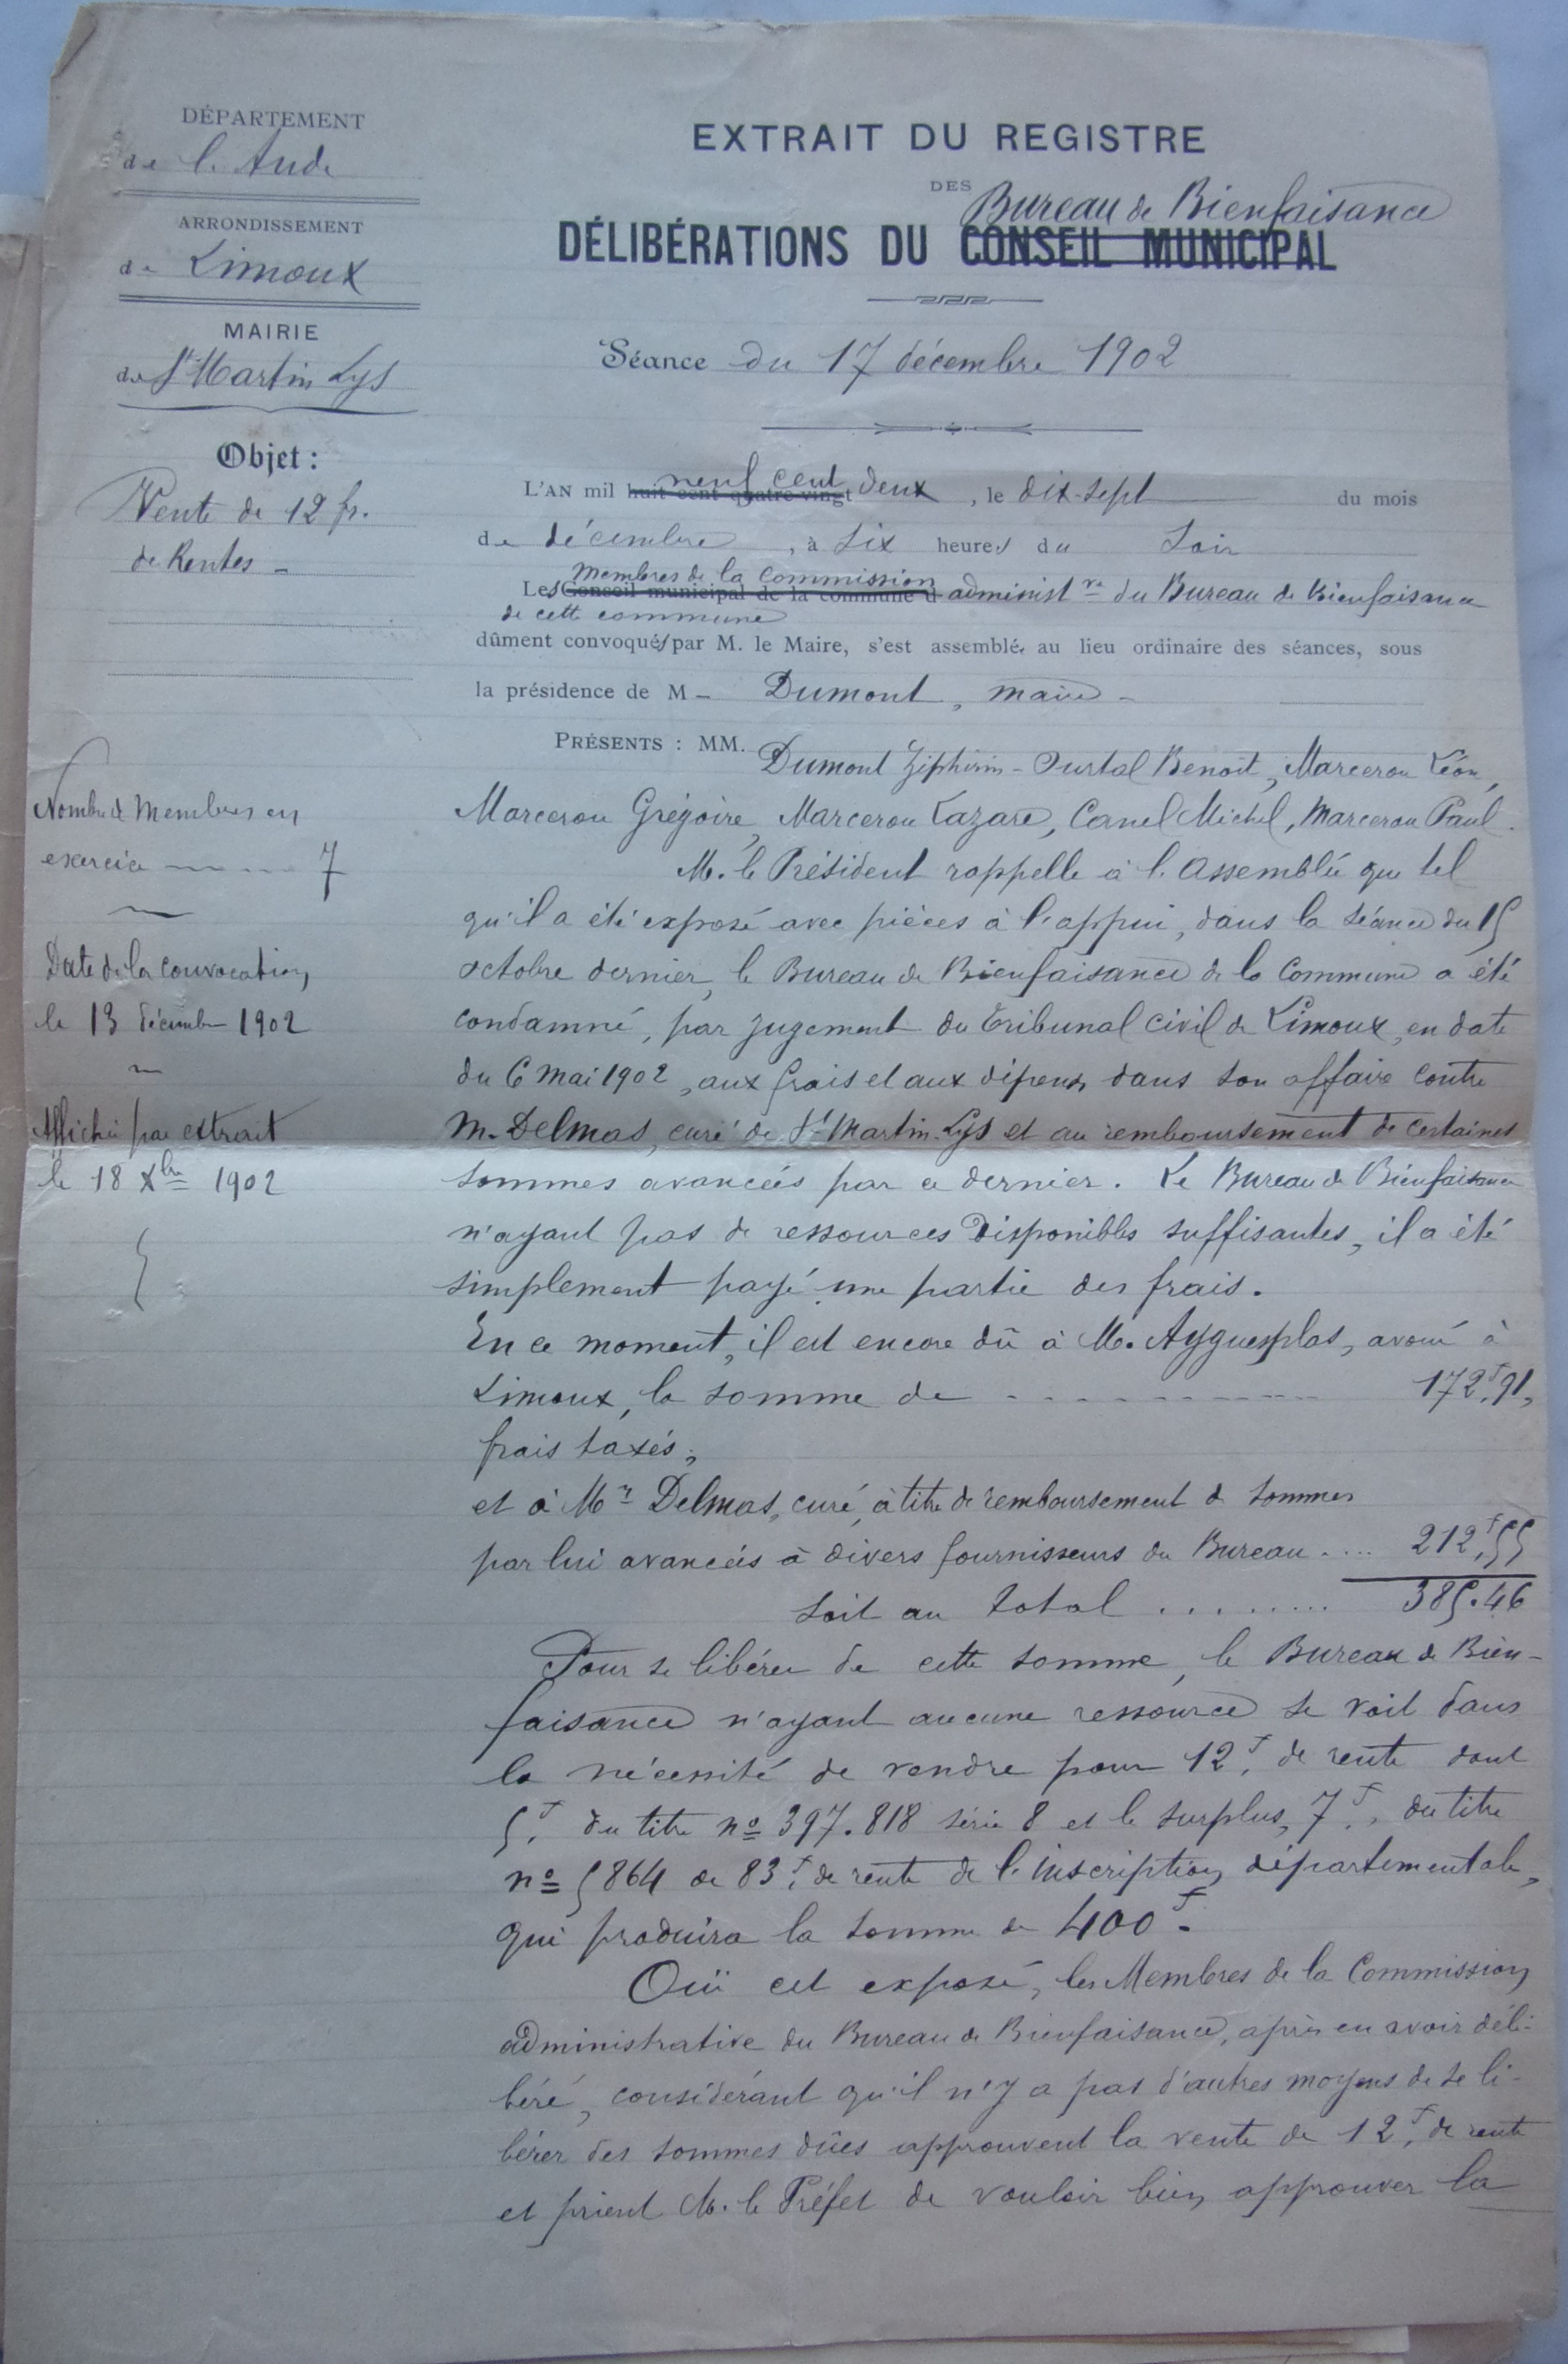 DÉPARTEMENT
de l'Aude
ARRONDISSEMENT
de Limoux
MAIRIE
de St Martin Lys
Objet :
Vente de 12 fr.
de Rentes -
Nombre de Membres en
exercice 7
Date de la convocation
le 13 décembre 1902
Affiché par extrait
le 18 Xbre 1902
EXTRAIT DU REGISTRE
DES
Bureau de Bienfaisance
DÉLIBÉRATIONS DU CONSEIL MUNICIPAL
Séance du 17 décembre 1902
neuf cent
L'AN mil huit cent quatre-vingt deux, le dix-sept du mois
de décembre, à six heures du soir
membres de la commission
Les Conseil municipal de la commune d administve du Bureau de Bienfaisance
de cette commune
dûment convoqués par M. le Maire, s'est assemblé, au lieu ordinaire des séances, sous
la présidence de M- Dumont, maire -
PRÉSENTS : MM. Dumont Zéphirin - Ourtal Benoît, Marceron Léon,
Marceron Grégoire, Marceron Lazare, Canel Michel, Marceron Paul.
M. le Président rappelle à l'assemblée que tel
qu'il a été exposé avec pièces à l'appui, dans la séance du 15
octobre dernier, le Bureau de Bienfaisance de la Commune a été
condamné, par jugement du Tribunal civil de Limoux, en date
du 6 mai 1902, aux frais et aux dépens dans son affaire contre
M. Delmas, curé de St Martin-Lys et au remboursement de certaines
sommes avancées par ce dernier. Le Bureau de Bienfaisance
n'ayant pas de ressources disponibles suffisantes, il a été
simplement payé une partie des frais.
En ce moment, il est encore dû à M. Ayguesplas, avoué à
Limoux, la somme de - - - - - - - - - - - 172f,91,
frais taxés,
et à Mr Delmas, curé, à titre de remboursement de sommes
par lui avancées à divers fournisseurs du Bureau .... 212f,55
soit au total ........ 385.46
Pour se libérer de cette somme, le Bureau de Bien-
faisance n'ayant aucune ressource se voit dans
la nécessité de vendre pour 12f. de rente dont
5f. du titre no 397.818 série 8 et le surplus, 7f., du titre
no 5864 de 83f. de rente de l'inscription départementale,
qui produira la somme de 400f.
Ouï cet exposé, les Membres de la Commission
administrative du Bureau de Bienfaisance, après en avoir déli-
béré, considérant qu'il n'y a pas d'autres moyens de se li-
bérer des sommes dûes approuvent la vente de 12f. de rente
et prient M. le Préfet de vouloir bien approuver la